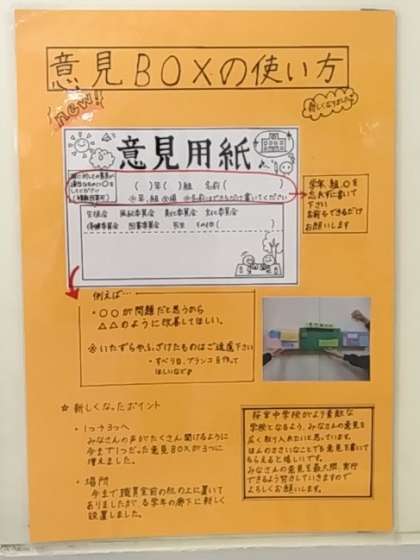 意見BOXの使い方
new!
新しくなりました!
意見用紙
(　)年(　)組　名前(　　　)
学年、組、○を
忘れずに書いて
下さい
名前もできるだけ
お願いします
生徒会
図書委員会
その他(
例えば…
・○○が問題だと思うから
△△のように改善してほしい。
※いたずらやふざけたものはご遠慮下さい
・すべり台、ブランコを作って
ほしいなど
☆ 新しくなったポイント
・1つ→3つへ
みなさんの声がたくさん聞けるように
今まで1つだった意見BOXが3つに
増えました。
・場所
今まで職員室前の机の上に置いて
ありましたが各学年の廊下に新しく
設置しました。
中学校がより素敵な
学校となるよう、みなさんの意見を
広く取り入れたいと思っています。
ほんのささいなことでも意見を書いて
もらえると嬉しいです。
みなさんの意見を最大限、実行
できるよう努力していきますので
よろしくお願いします。